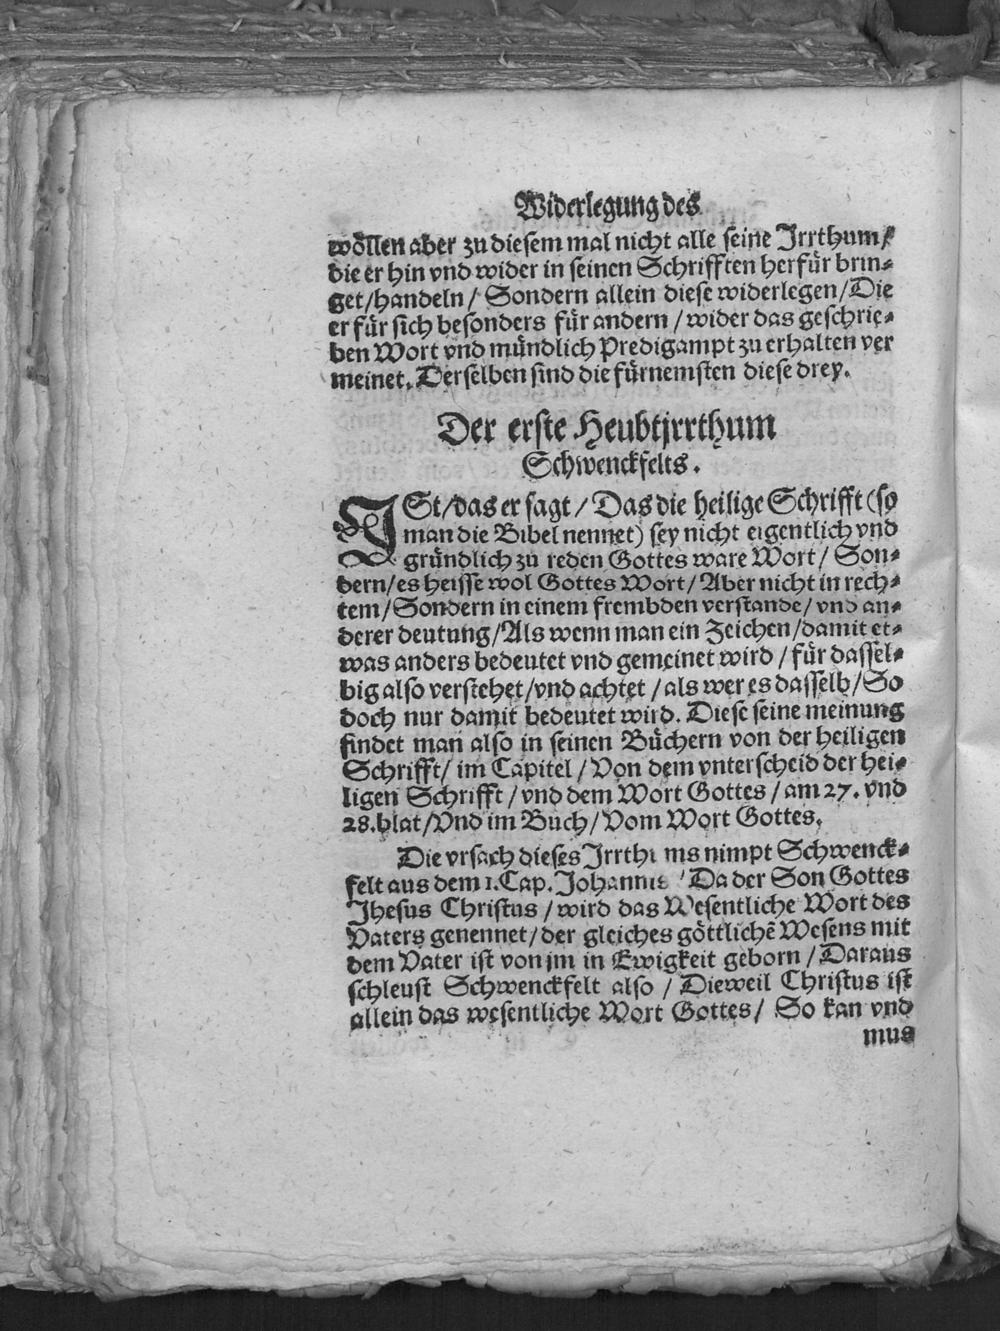 Widerlegung des
wöllen aber zu diesem mal nicht alle seine Jrrthum/
die er hin vnd wider in seinen Schrifften herfür brin-
get/handeln/ Sondern allein diese widerlegen/Die
er für sich besonders für andern/wider das geschrie-
ben Wort vnd mündlich Predigampt zu erhalten ver
meinet. Derselben sind die fürnemsten diese drey.
Der erste Heubtjrrthum
Schwenckfelts.
JSt/das er sagt/Das die heilige Schrifft (so
man die Bibel nennet) sey nicht eigentlich vnd
gründlich zu reden Gottes ware Wort/ Son-
dern/es heisse wol Gottes Wort/Aber nicht in rech-
tem/Sondern in einem frembden verstande/vnd an-
derer deutung/Als wenn man ein Zeichen/damit et-
was anders bedeutet vnd gemeinet wird/für dassel-
big also verstehet/vnd achtet/als wer es dasselb/So
doch nur damit bedeutet wird. Diese seine meinung
findet man also in seinen Büchern von der heiligen
Schrifft/ im Capitel/Von dem vnterscheid der hei-
ligen Schrifft/vnd dem Wort Gottes/am 27. vnd
28.blat/Vnd im Buch/Vom Wort Gottes.
Die vrsach dieses Jrrthums nimpt Schwenck-
felt aus dem 1.Cap. Johannis/Da der Son Gottes
Jhesus Christus/wird das Wesentliche Wort des
Vaters genennet/der gleiches göttlichẽ Wesens mit
dem Vater ist von jm in Ewigkeit geborn/Daraus
schleust Schwenckfelt also/ Dieweil Christus ist
allein das wesentliche Wort Gottes/ So kan vnd
mus